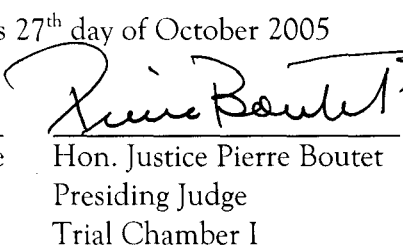 s 27th day of October 2005
Pierre Boutet
e Hon. Justice Pierre Boutet
Presiding Judge
Trial Chamber I